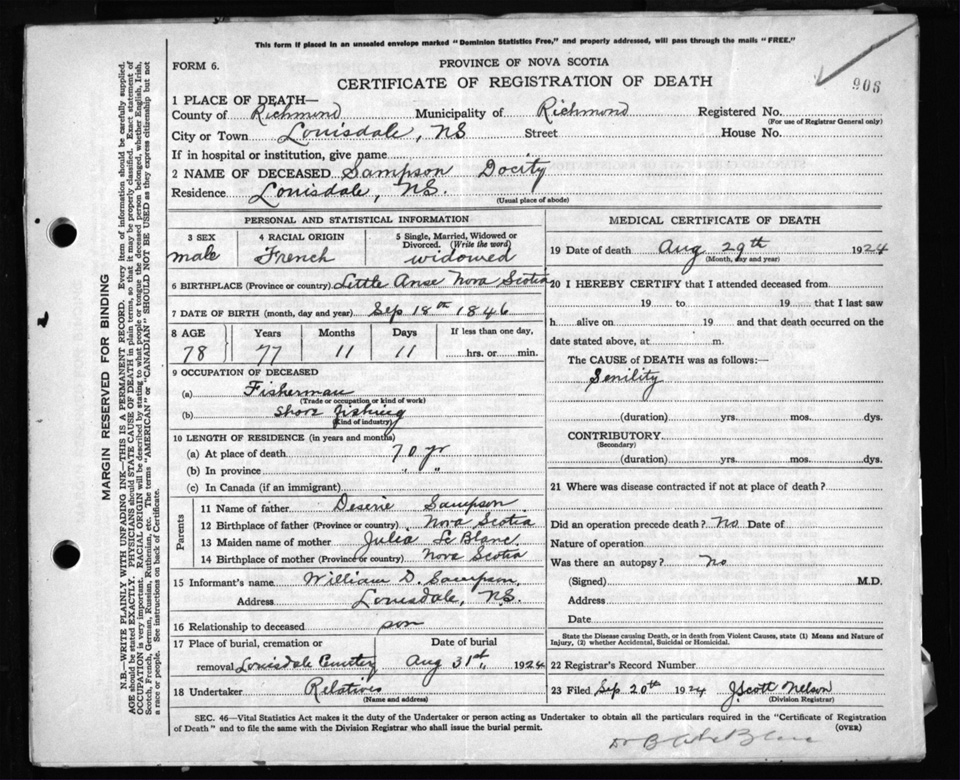 This form if placed in an unsealed envelope marked "Dominion Statistics Free," and properly addressed, will pass through the mails "FREE."
FORM 6.
PROVINCE OF NOVA SCOTIA
CERTIFICATE OF REGISTRATION OF DEATH
906
1 PLACE OF DEATH—
County of Richmond Municipality of Richmond Registered No.
(For use of Registrar General only)
City or Town Louisdale, NS Street House No.
If in hospital or institution, give name
2 NAME OF DECEASED Sampson Docity
Residence Louisdale, NS.
(Usual place of abode)
PERSONAL AND STATISTICAL INFORMATION
3 SEX 4 RACIAL ORIGIN 5 Single, Married, Widowed or Divorced. (Write the word)
male French widowed
6 BIRTHPLACE (Province or country) Little Anse Nova Scotia
7 DATE OF BIRTH (month, day and year) Sep 18th 1846
8 AGE Years Months Days If less than one day,
78 77 11 11 hrs. or min.
9 OCCUPATION OF DECEASED
(a) Fisherman
(Trade or occupation or kind of work)
(b) Shore fishing
(kind of industry)
10 LENGTH OF RESIDENCE (in years and months)
(a) At place of death 70 yr
(b) In province " "
(c) In Canada (if an immigrant)
Parents
11 Name of father Desirie Sampson
12 Birthplace of father (Province or country) Nova Scotia
13 Maiden name of mother Julia Le Blanc
14 Birthplace of mother (Province or country) Nova Scotia
15 Informant's name William D. Sampson
Address Louisdale, NS.
16 Relationship to deceased son
17 Place of burial, cremation or Date of burial
removal Louisdale Cemetery Aug 31st 1924
18 Undertaker Relatives
(Name and address)
MEDICAL CERTIFICATE OF DEATH
19 Date of death Aug 29th 1924
(Month, day and year)
20 I HEREBY CERTIFY that I attended deceased from
19 to 19 that I last saw
h alive on 19 and that death occurred on the
date stated above, at m.
The CAUSE of DEATH was as follows:—
Senility
(duration) yrs. mos. dys.
CONTRIBUTORY
(Secondary)
(duration) yrs. mos. dys.
21 Where was disease contracted if not at place of death?
Did an operation precede death? No Date of
Nature of operation
Was there an autopsy? No
(Signed) M.D.
Address
Date
State the Disease causing Death, or in death from Violent Causes, state (1) Means and Nature of
Injury, (2) whether Accidental, Suicidal or Homicidal.
22 Registrar's Record Number
23 Filed Sep. 20th 1924 J Scott Nelson
(Division Registrar)
SEC. 46—Vital Statistics Act makes it the duty of the Undertaker or person acting as Undertaker to obtain all the particulars required in the "Certificate of Registration
of Death" and to file the same with the Division Registrar who shall issue the burial permit. (OVER)
Dr B
MARGIN RESERVED FOR BINDING
N.B.—WRITE PLAINLY WITH UNFADING INK—THIS IS A PERMANENT RECORD. Every item of information should be carefully supplied.
AGE should be stated EXACTLY. PHYSICIANS should STATE CAUSE OF DEATH in plain terms, so that it may be properly classified. Exact statement of
OCCUPATION is very important. RACIAL ORIGIN will be described by stating to what people or tongue the deceased person belonged, whether English, Irish,
Scotch, French, German, Russian, Ruthenian, etc. The terms "AMERICAN" or "CANADIAN" SHOULD NOT BE USED as they express citizenship but not
a race or people. See instructions on back of Certificate.